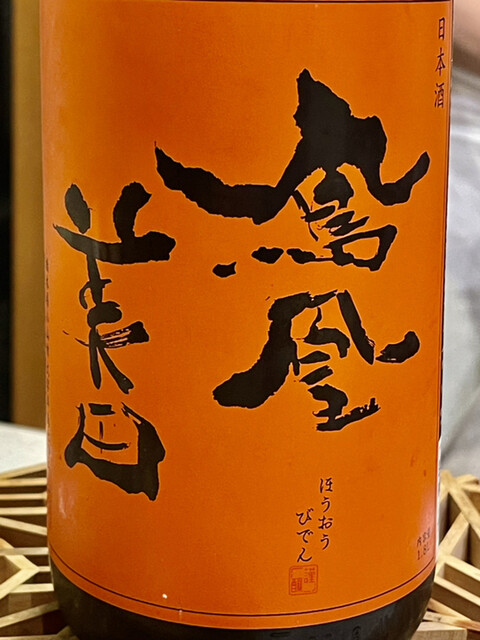 日本酒
鳳凰
美田
ほうおう
びでん
内容量
1.8L